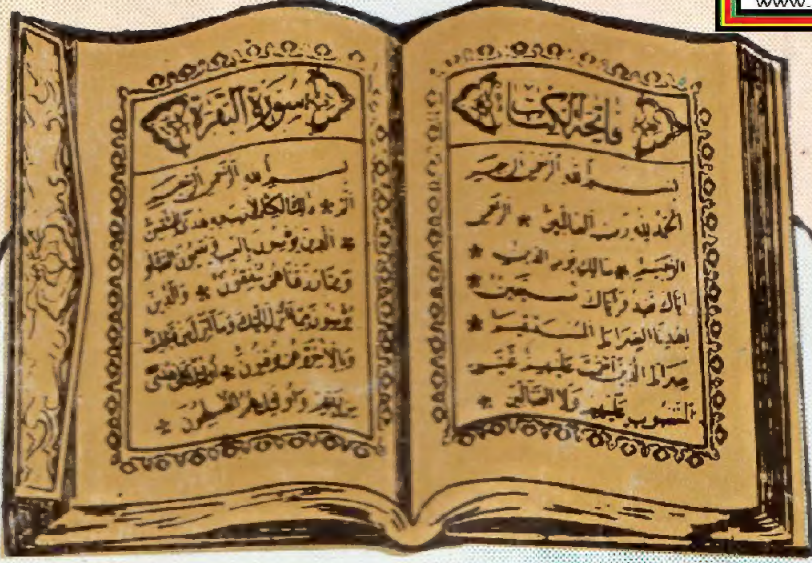 www.
فاتحة الكتاب
بسم الله الرحمن الرحيم
الحمد لله رب العالمين * الرحمن
الرحيم * مالك يوم الدين *
اياك نعبد واياك نستعين *
اهدنا الصراط المستقيم *
صراط الذين انعمت عليهم غير
المغضوب عليهم ولا الضالين *
سورة البقرة
بسم الله الرحمن الرحيم
الم * ذلك الكتاب لا ريب فيه هدى للمتقين
* الذين يؤمنون بالغيب ويقيمون الصلوة
ومما رزقناهم ينفقون * والذين
يؤمنون بما انزل اليك وما انزل من قبلك
وبالاخرة هم يوقنون * اولئك على هدى
من ربهم واولئك هم المفلحون *